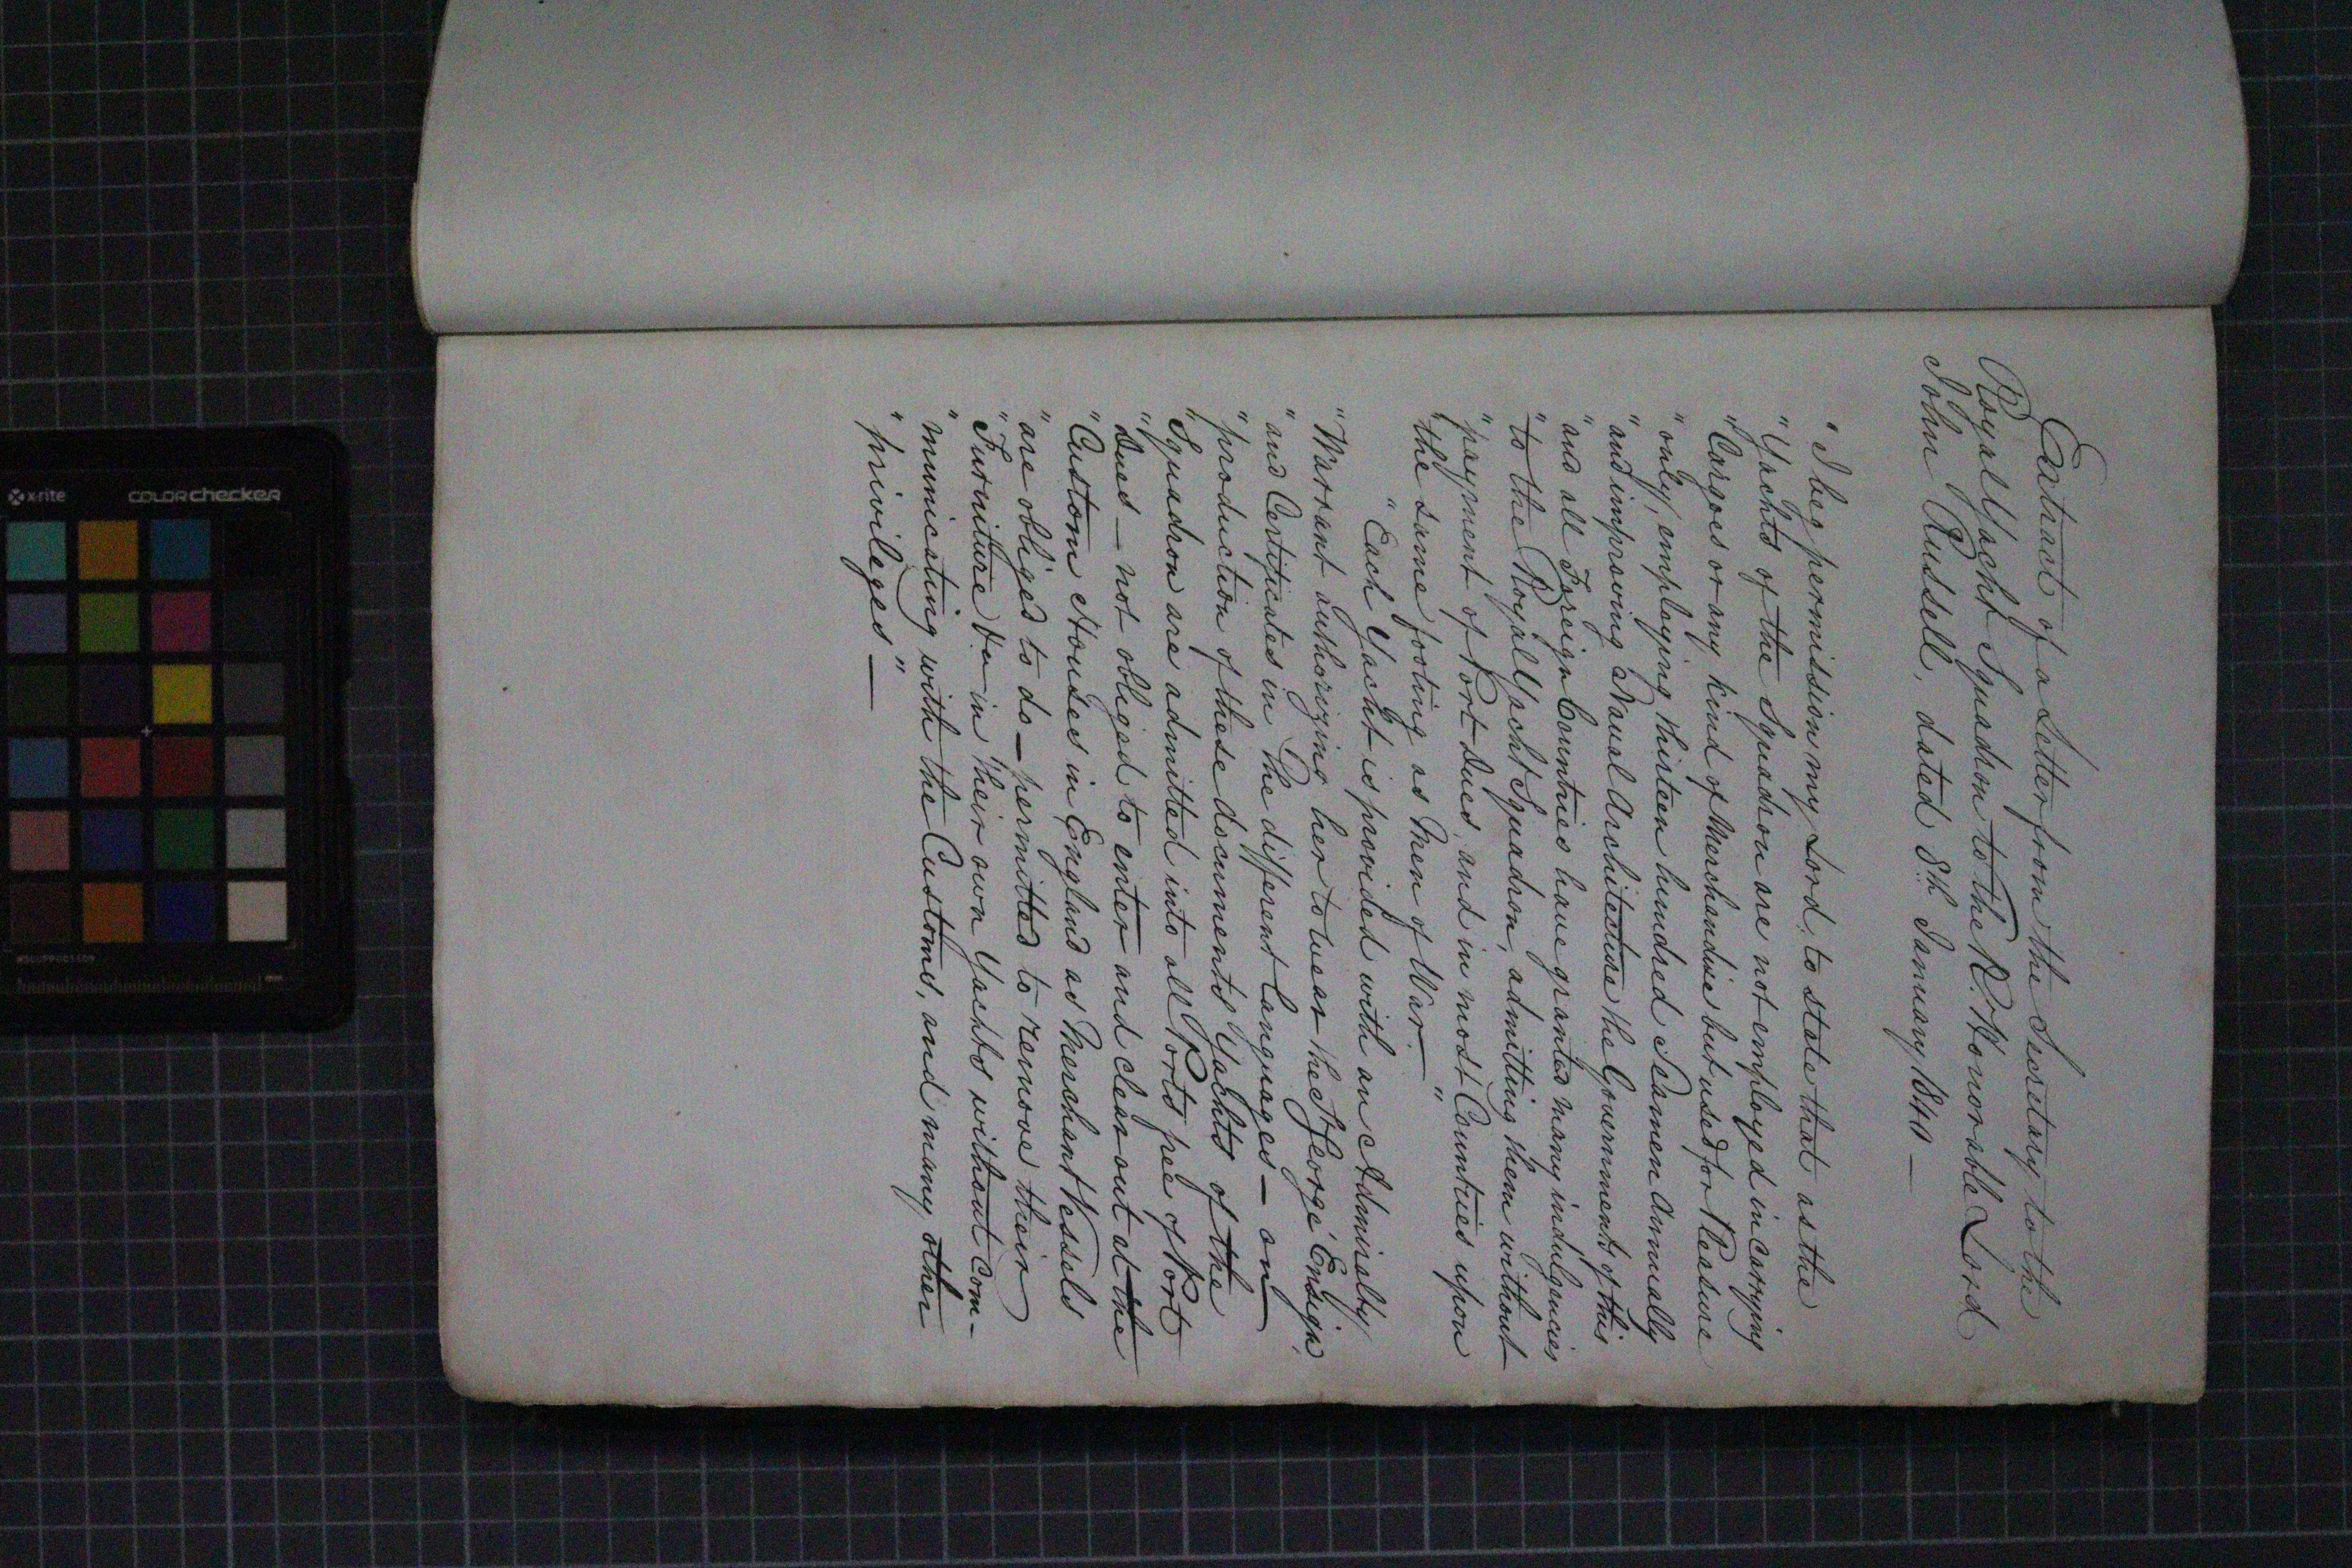 Extract of a Letter from the Secretary to the
Royal Yacht Squadron to the Rt. Honorable Lord
John Russell, dated 8th. January 1840 —
"I beg permission my Lord, to state that as the
"Yachts of the Squadron are not employed in carrying
"Cargoes or any kind of Merchandise but used for Pleasure
"only, employing thirteen hundred Seamen Annually
"and improving Naval Architecture the Governments of this
"and all Foreign Countries have granted many indulgencies
"to the Royal Yacht Squadron, admitting them without
"payment of Port Dues, and in most Countries upon
"the same footing as Men of War. — "
"Each Yacht is provided with an Admiralty
"Warrant authorizing her to wear the St George' Ensign,
"and Certificates in the different Languages — on
"production of these documents Yachts of the
"Squadron are admitted into all Ports free of Port
"Dues — not obliged to enter and clear out at the
"Custom Houses in England as Merchant Vessels
"are obliged to do — permitted to remove their
"Furniture &c in their own Yachts without com-
"municating with the Customs, and many other
"privileges — "
x-rite
COLORchecker
mm